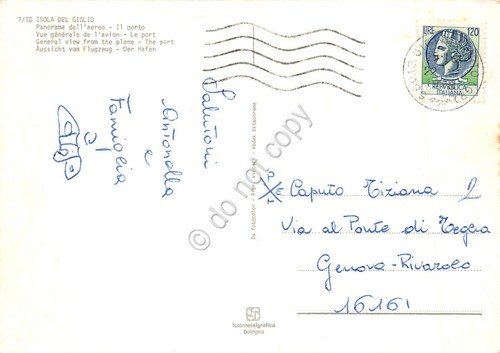 7/IG ISOLA DEL GIGLIO
Panorama dall'aereo - Il porto
Vue générale de l'avion - Le port
General view from the plane - The port
Aussicht vom Flugzeug - Der Hafen
LIRE 120
REPUBBLICA
ITALIANA
58013
Salutoni
Antonella
e
Famiglia
do not copy
Caputo Tiziana
Via al Ponte di Teglia
Genova - Rivarolo
16161
fotometalgrafica
bologna